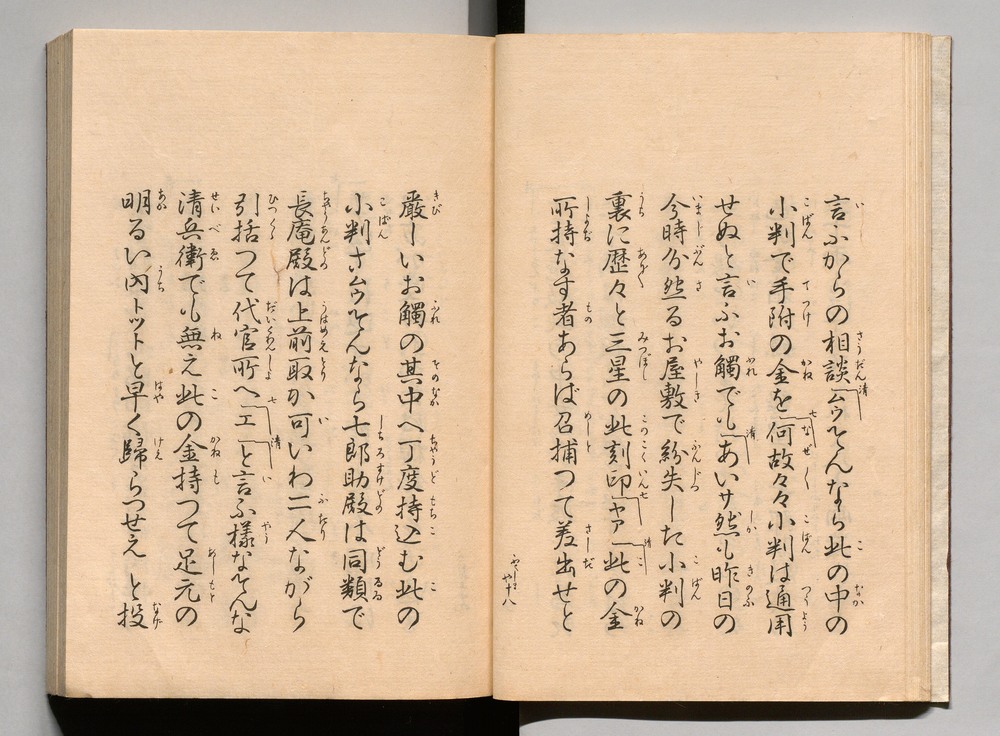 言ふからの相談清「ムウそんなら此の中の
小判で手附の金を七「何故々々小判は通用
せぬと言ふお觸でも清「あいサ然も昨日の
今時分然るお屋敷で紛失した小判の
裏に歴々と三星の此刻印七「ヤア清「此の金
所持なす者あらば召捕つて差出せと
厳しいお觸の其中へ丁度持込む此の
小判さムウそんなら七郎助殿は同類で
長庵殿は上前取か可いわ二人ながら
引括つて代官所へ七「エ清「と言ふ樣なそんな
清兵衛でも無え此の金持つて足元の
明るい內トツトと早く歸らつせえ と投